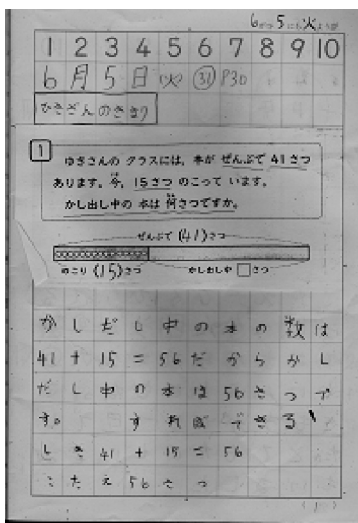 6がつ5にち火ようび
1 2 3 4 5 6 7 8 9 10
6月5日(火) 31 P30
ひきざんのきまり
1
ゆきさんの クラスには、本が ぜんぶで 41さつ
あります。今、15さつ のこって います。
かし出し中の 本は 何さつですか。
ぜんぶで(41)さつ
のこり(15)さつ かしだし中 □さつ
かしだし中の本の数は
41+15=56だからかし
だし中の本は56さつで
す。 すればできる
しき41+15=56
こたえ56さつ